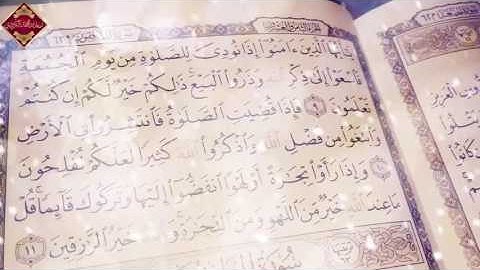 يَـٰٓأَيُّهَا ٱلَّذِينَ ءَامَنُوٓا۟ إِذَا نُودِىَ لِلصَّلَوٰةِ مِن يَوْمِ ٱلْجُمُعَةِ
فَٱسْعَوْا۟ إِلَىٰ ذِكْرِ ٱللَّهِ وَذَرُوا۟ ٱلْبَيْعَ ۚ ذَٰلِكُمْ خَيْرٌ لَّكُمْ إِن كُنتُمْ
تَعْلَمُونَ ٩ فَإِذَا قُضِيَتِ ٱلصَّلَوٰةُ فَٱنتَشِرُوا۟ فِى ٱلْأَرْضِ
وَٱبْتَغُوا۟ مِن فَضْلِ ٱللَّهِ وَٱذْكُرُوا۟ ٱللَّهَ كَثِيرًا لَّعَلَّكُمْ تُفْلِحُونَ
١٠ وَإِذَا رَأَوْا۟ تِجَـٰرَةً أَوْ لَهْوًا ٱنفَضُّوٓا۟ إِلَيْهَا وَتَرَكُوكَ قَآئِمًا ۚ قُلْ
مَا عِندَ ٱللَّهِ خَيْرٌ مِّنَ ٱللَّهْوِ وَمِنَ ٱلتِّجَـٰرَةِ ۚ وَٱللَّهُ خَيْرُ ٱلرَّٰزِقِينَ ١١
سُورَةُ